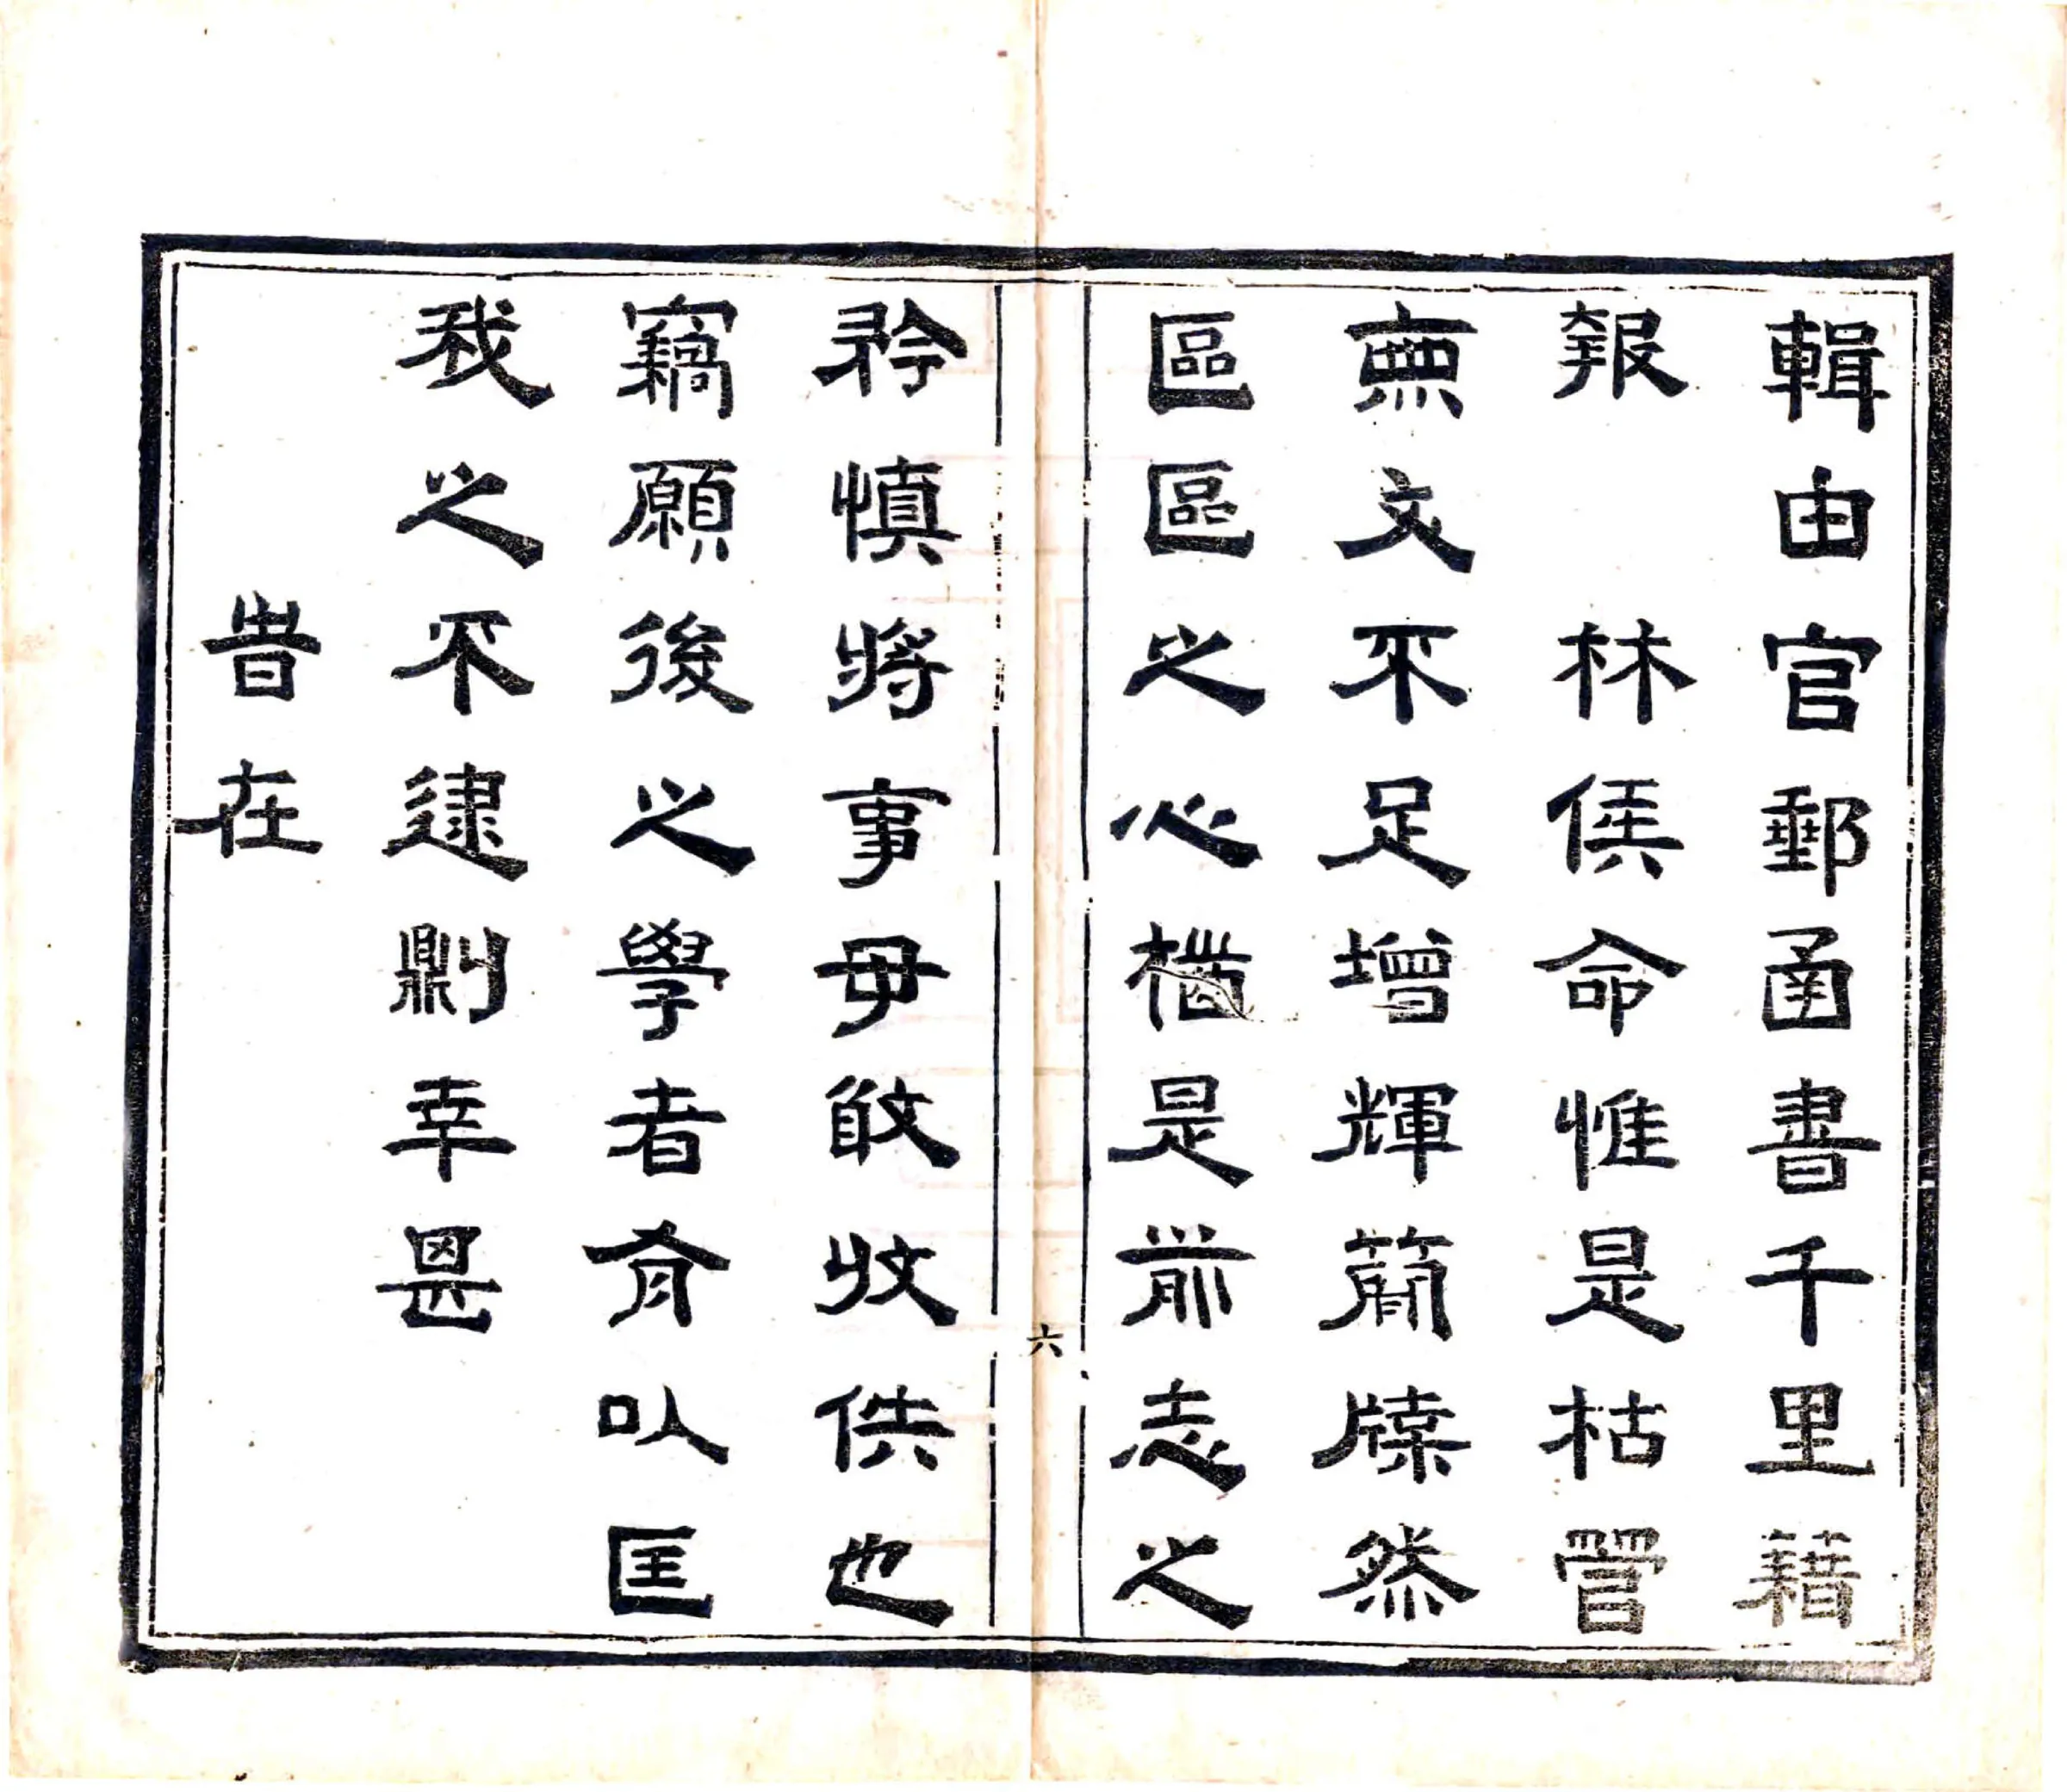 輯由官郵函書千里藉
報　林侯命惟是枯管
無文不足增輝簡牒然
區區之心是前志之
六
矜慎將事毋敢收供也
竊願後之學者有以匡
我之不逮鼎刂幸甚
旹在